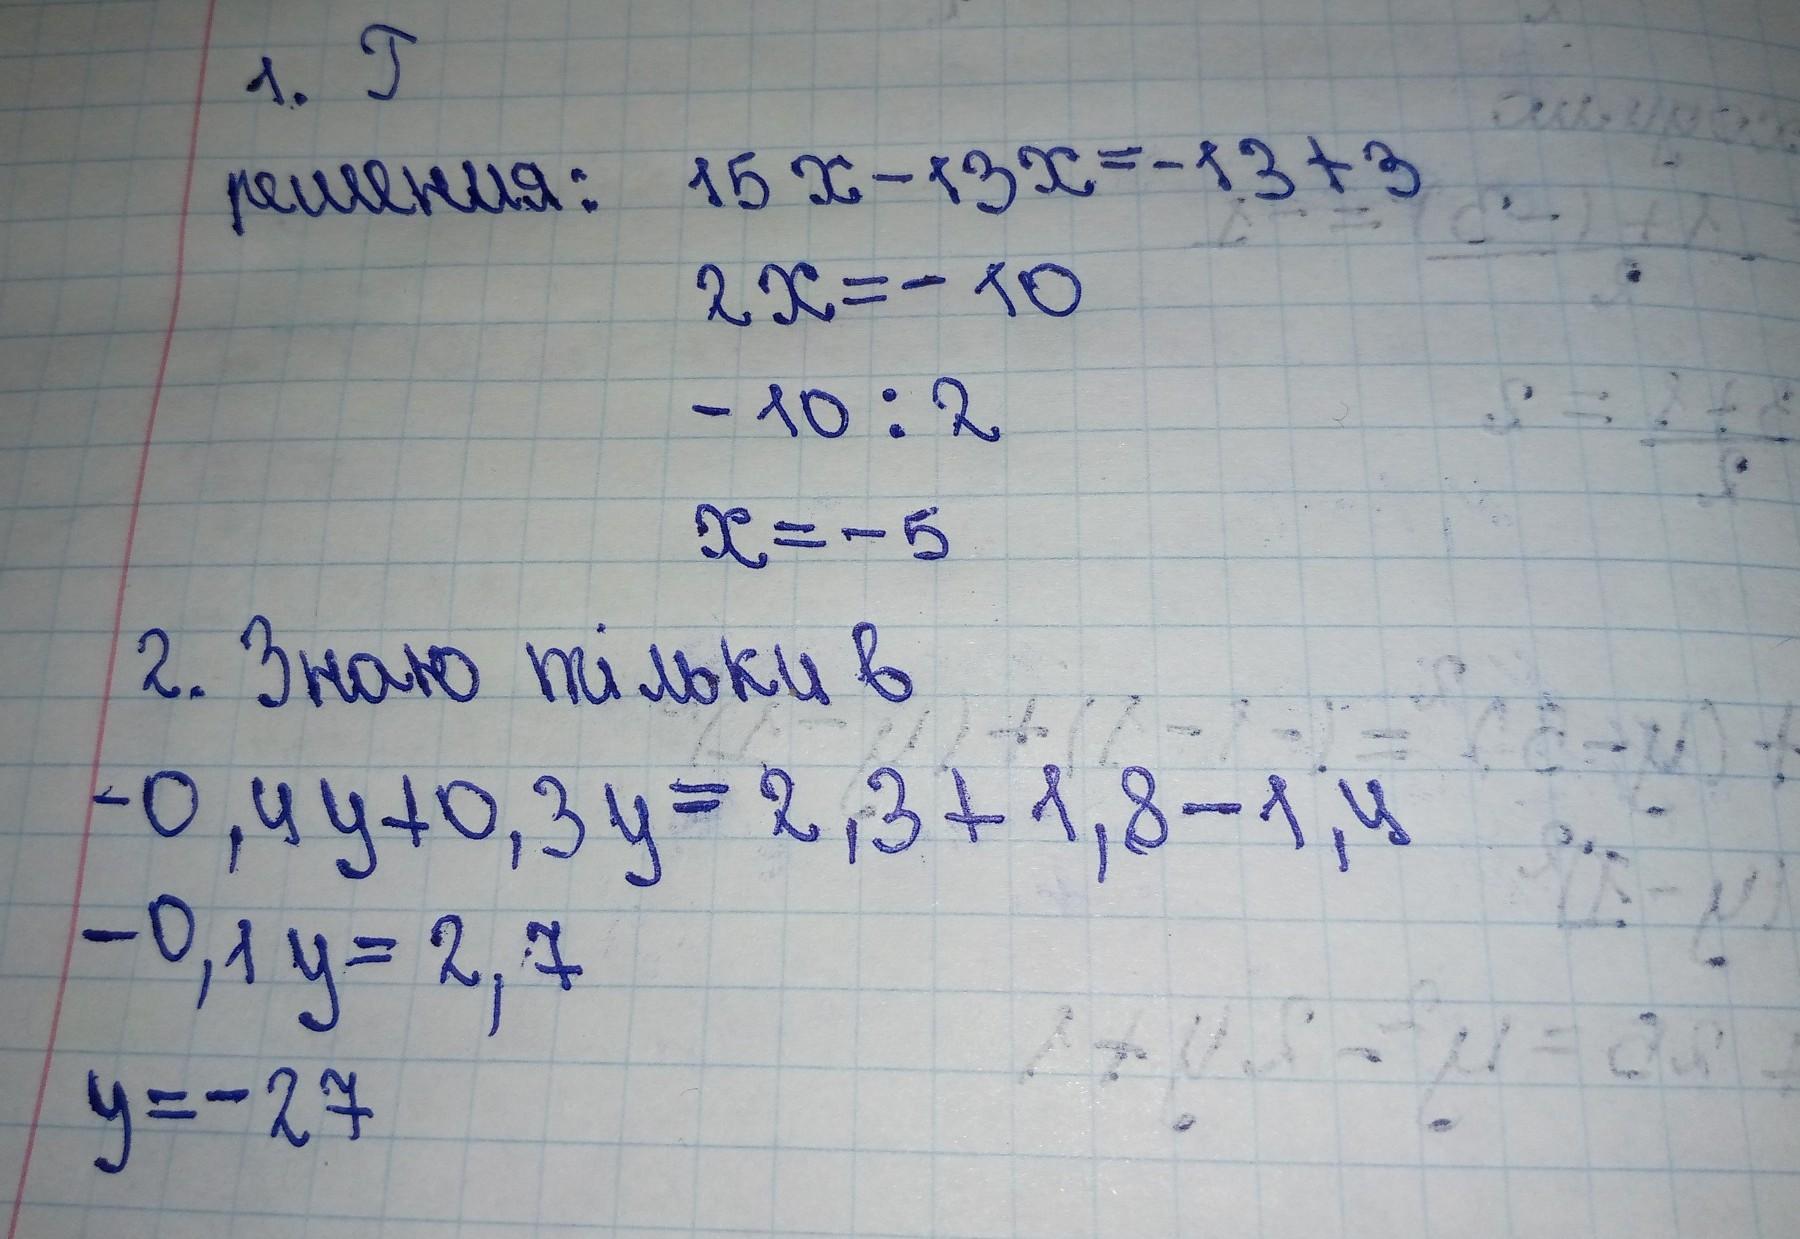 1. Г
решения: 15x-13x=-13+3
2x=-10
-10:2
x=-5
2. Знаю тільки в
-0,4y+0,3y=2,3+1,8-1,4
-0,1y=2,7
y=-27